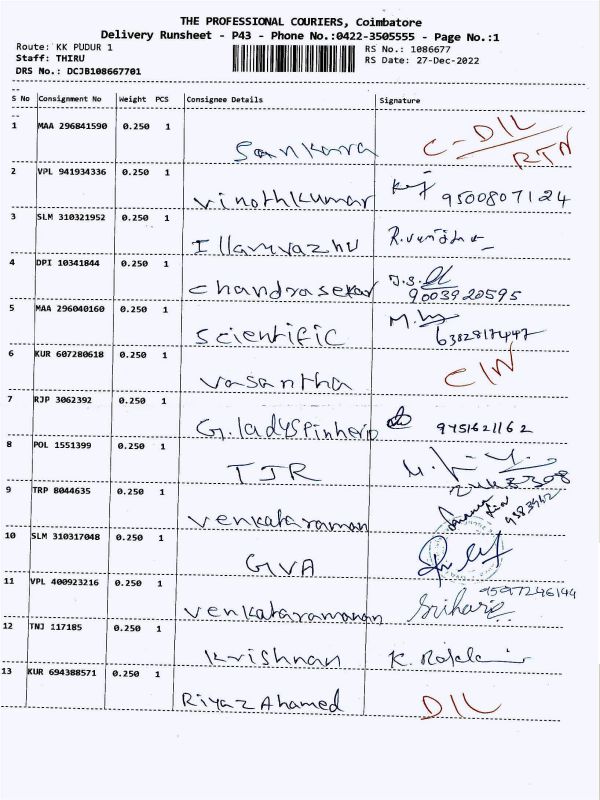 THE PROFESSIONAL COURIERS, Coimbatore
Delivery Runsheet - P43 - Phone No.:0422-3505555 - Page No.:1
Route: KK PUDUR 1 RS No.: 1086677
Staff: THIRU RS Date: 27-Dec-2022
DRS No.: DCJB108667701
S No Consignment No Weight PCS Consignee Details Signature
1 MAA 296841590 0.250 1 Sankara C-DIL
RTN
2 VPL 941934336 0.250 1 Vinothkumar 9500807124
3 SLM 310321952 0.250 1 Illamvazhu
4 DPI 10341844 0.250 1 Chandrasekar 9003920595
5 MAA 296040160 0.250 1 Scientific 6382817447
6 KUR 607280618 0.250 1 Vasantha C/N
7 RJP 3062392 0.250 1 G.ladyspinhero 9751621162
8 POL 1551399 0.250 1 TJR
9 TRP 8044635 0.250 1 Venkataraman
10 SLM 310317048 0.250 1 GVA
11 VPL 400923216 0.250 1 Venkataramanan Sriharis
12 TNJ 117185 0.250 1 Krishnan
13 KUR 694388571 0.250 1 Riyaz Ahamed DIL